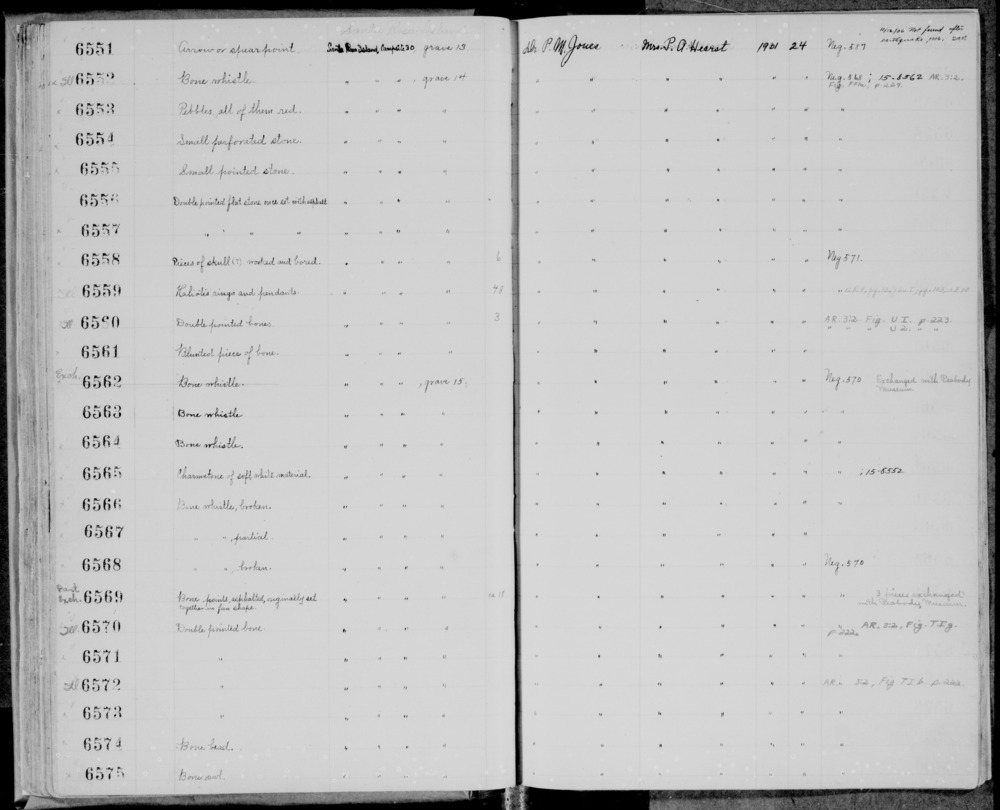 6551 Arrow or spearpoint. Santa Rosa Island, grave 13 Dr. P. M. Jones Mrs. P. A. Hearst 1901 24 Neg. 567 Not found after earthquake,
Ill 6552 Bone whistle. " " " , grave 14 " " " " Neg. 568 ; 15-8562 AR. 3:2.
Fig. p. 229.
6553 Pebbles, all of them red. " " " " " " " " "
6554 Small perforated stone. " " " " " " " " "
6555 Small pointed stone. " " " " " " " " "
6556 Double pointed flat stone once set with asphalt " " " " " " " " "
6557 " " " " " " " " " " " " "
6558 Pieces of skull (?) worked and bored. " " " " 6 " " " " Neg 571.
6559 Haliotis rings and pendants. " " " " 48 " " " " "
Ill 6560 Double pointed bones " " " " 3 " " " " AR. 3:2 Fig. U 1. p. 223.
" " " U 2. " "
6561 Blunted pieces of bone. " " " " " " " " "
Exch. 6562 Bone whistle. " " " , grave 15. " " " " Neg. 570 Exchanged with Peabody
Museum
6563 Bone whistle " " " " " " " " "
6564 Bone whistle. " " " " " " " " "
6565 Charmstone of soft white material. " " " " " " " " " ; 15-8552
6566 Bone whistle, broken. " " " " " " " " "
6567 " " , partial " " " " " " " "
6568 " " , broken. " " " " " " " " Neg. 570
Part
Exch. 6569 Bone points, asphalted, originally set " " " " ca 11 " " " " " 3 pieces exchanged
together in fan shape. with Peabody Museum.
Ill 6570 Double pointed bone. " " " " " " " " " AR, 3:2, Fig. T I g.
p 222.
6571 " " " " " " " " " "
Ill 6572 " " " " " " " " " AR. " 3:2, Fig T I b p. 222
6573 " " " " " " " " " "
6574 Bone bead. " " " " " " " " "
6575 Bone awl. " " " " " " " " "